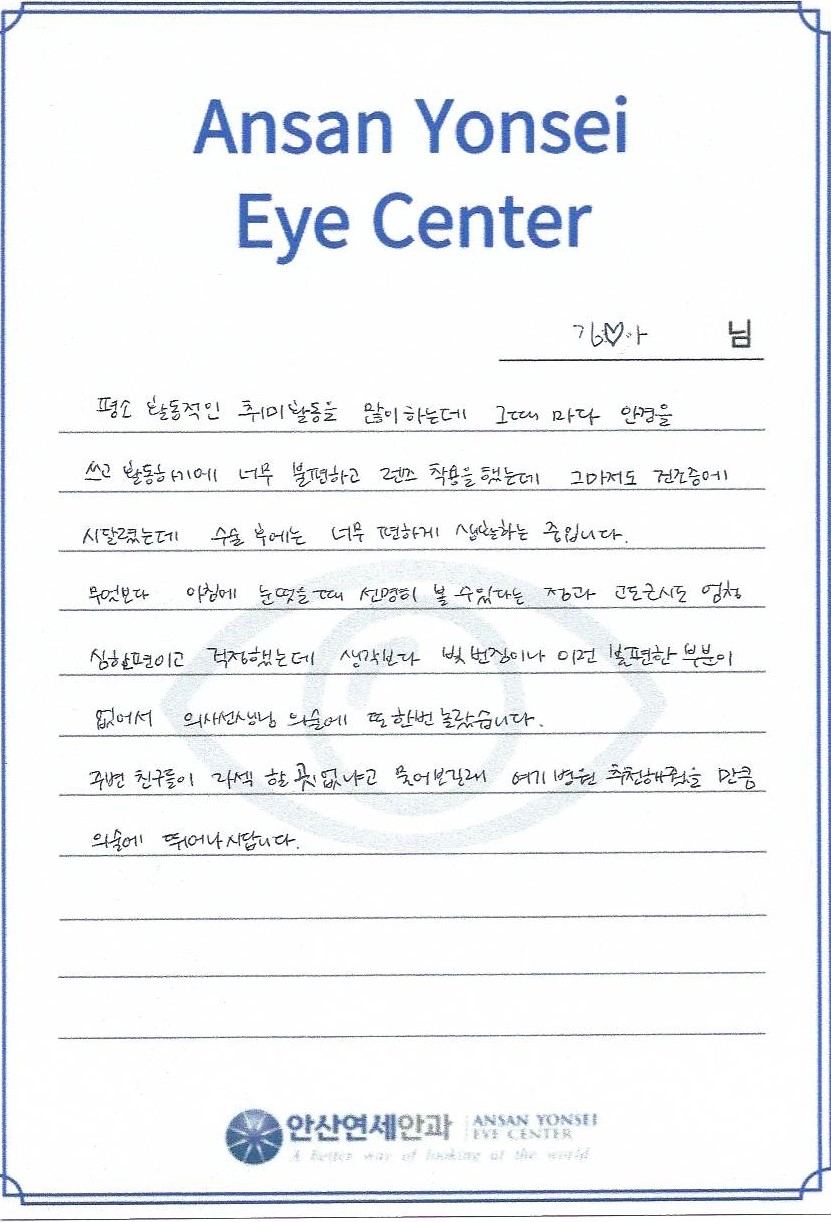 Ansan Yonsei
Eye Center
김♡아 님
평소 활동적인 취미활동을 많이하는데 그때 마다 안경을
쓰고 활동하기에 너무 불편하고 렌즈 착용을 했는데 그마저도 건조증에
시달렸는데 수술 후에는 너무 편하게 생활하는 중입니다.
무엇보다 아침에 눈떴을때 선명히 볼 수있다는 점과 고도근시도 엄청
심한편이고 걱정했는데 생각보다 빛번짐이나 이런 불편한 부분이
없어서 의사선생님 의술에 또 한번 놀랐습니다.
주변 친구들이 라섹 할 곳 없냐고 물어보길래 여기 병원 추천해줬을 만큼
의술에 뛰어나시답니다.
안산연세안과 ANSAN YONSEI
EYE CENTER
A better way of looking at the world